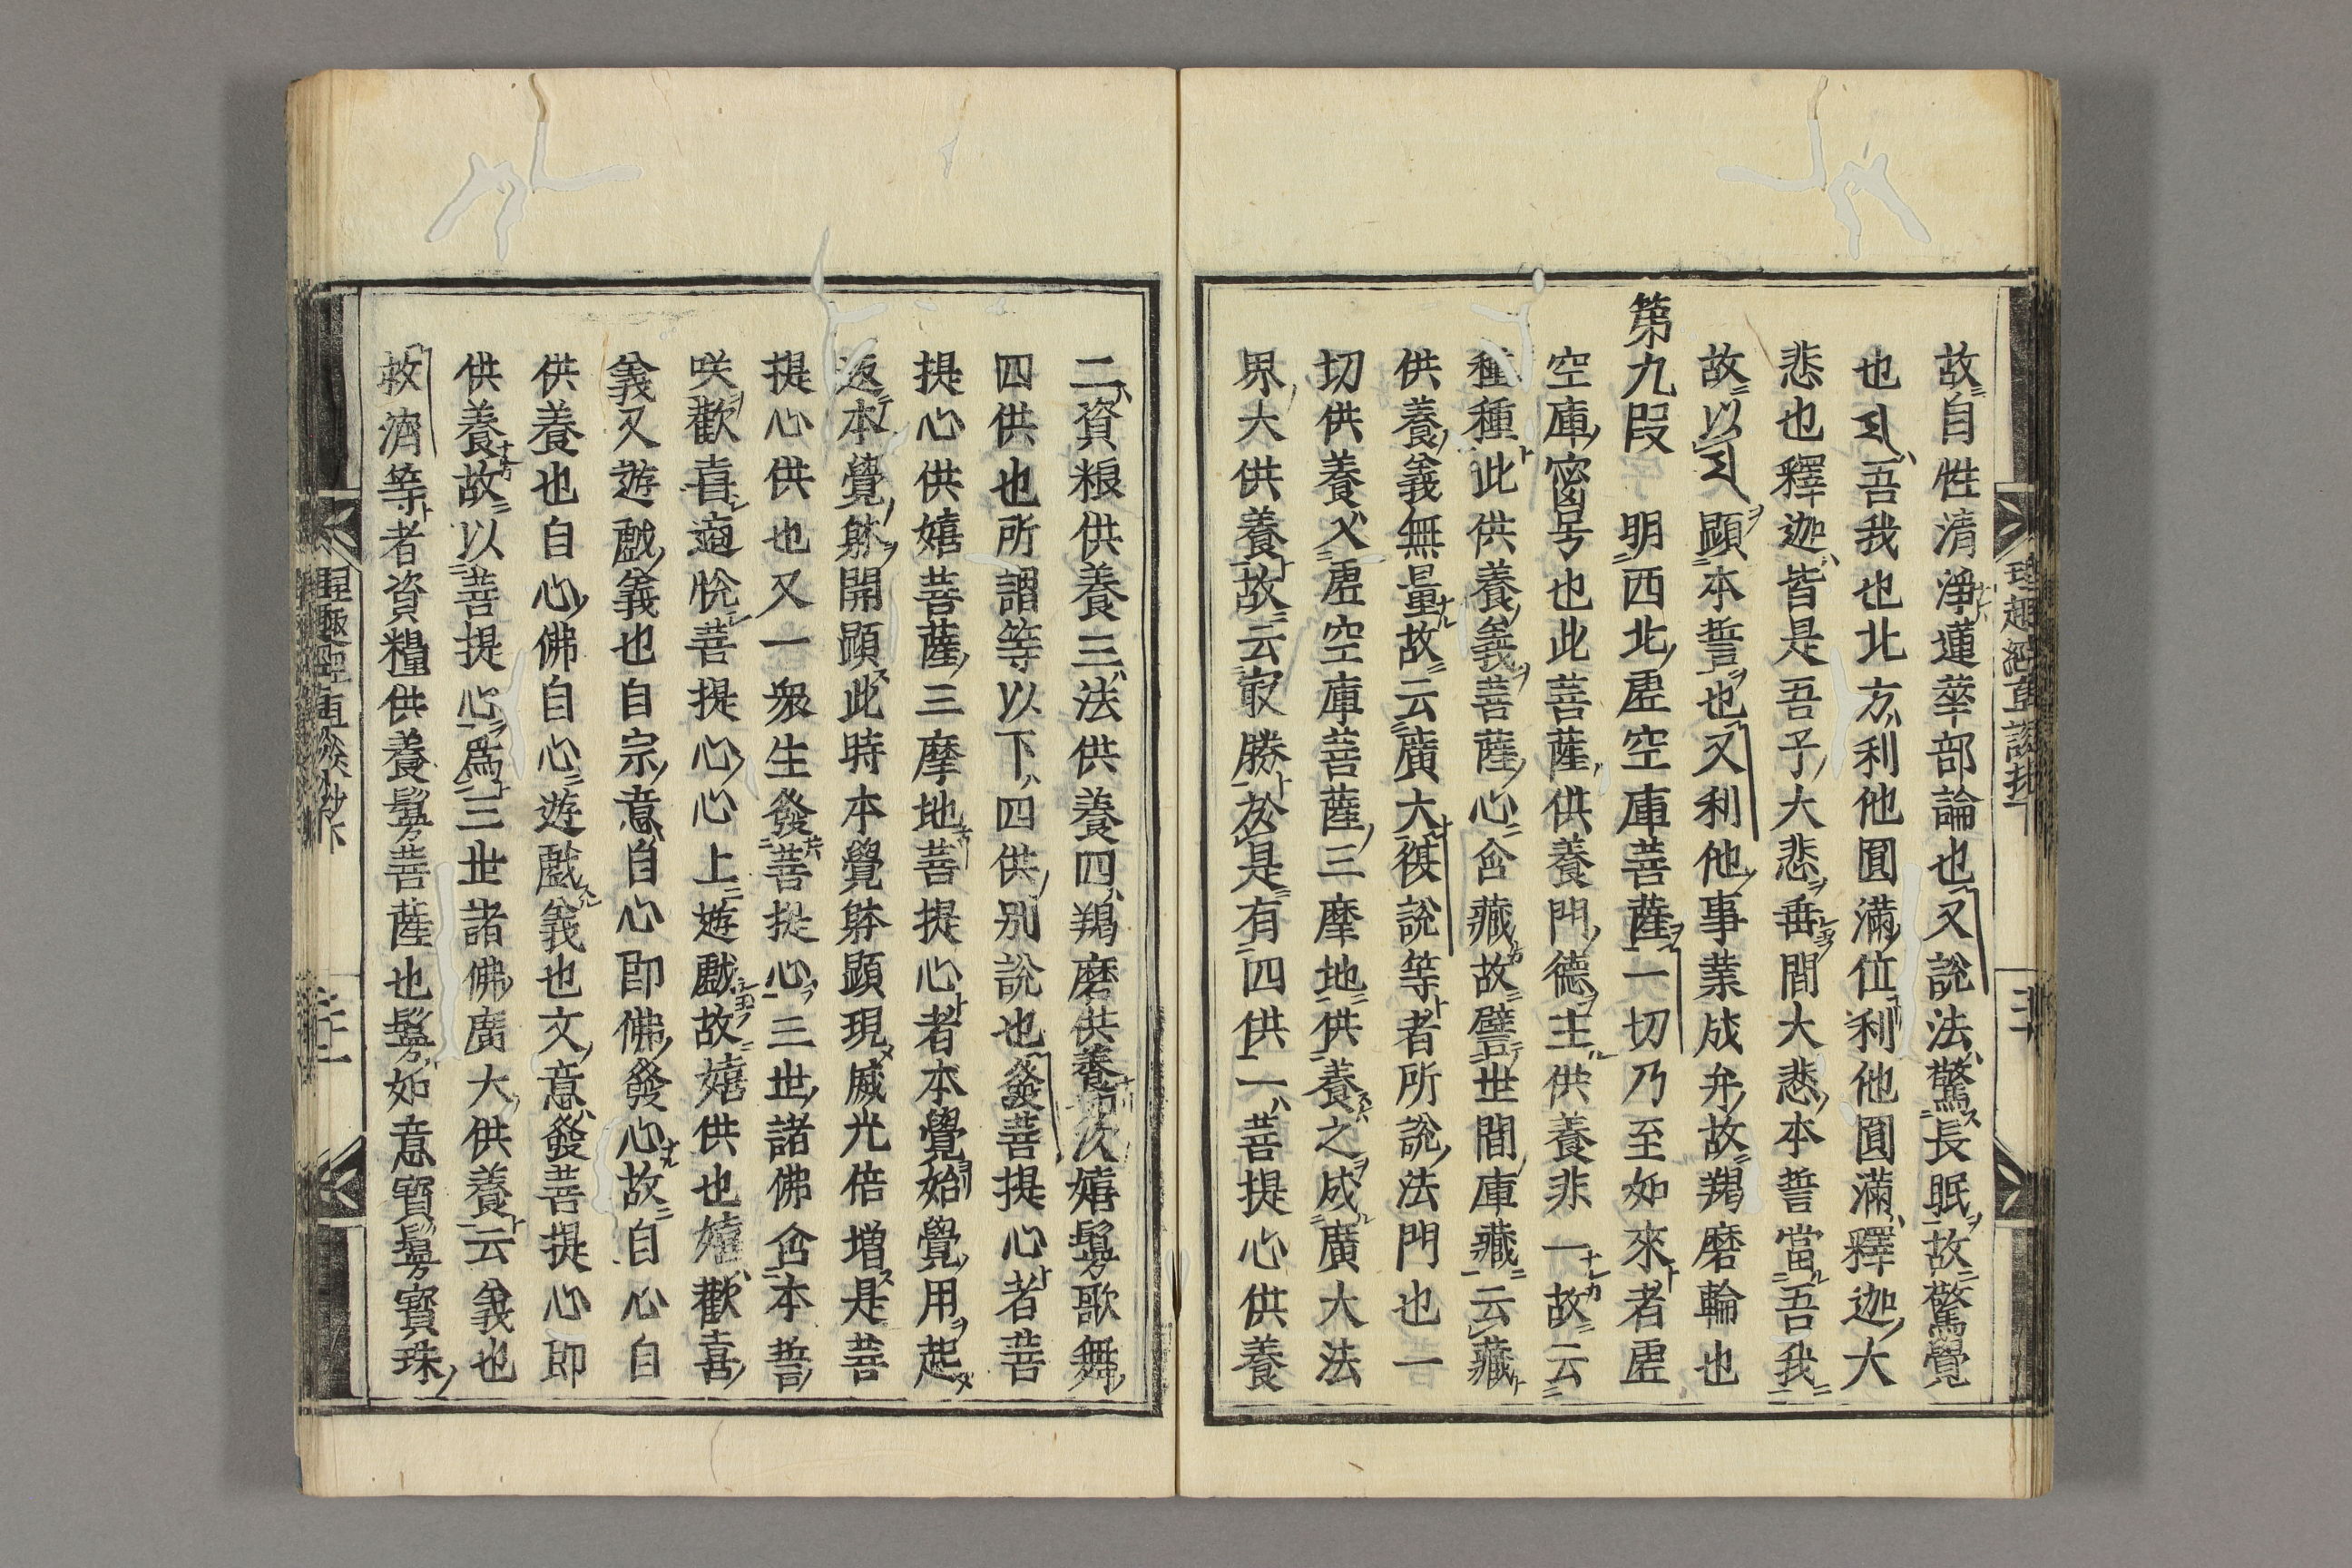 故自性清淨蓮華部論也又説法驚長眠故驚覺
也吾我也北方利他圓滿位利他圓滿釋迦大
悲也釋迦皆是吾子大悲垂間大悲本誓當吾我
故以顕本誓也又利他事業成弁故羯磨輪也
第九段 明西北虚空庫菩薩一切乃至如來者虚
空庫密号也此菩薩供養門德主供養非一故云
種種此供養義菩薩心含藏故譬世間庫藏云藏
供養義無量故云廣大儀說等者所說法門也一
切供養以虚空庫菩薩三摩地供養之成廣大法
界大供養故云㝡勝於是有四供一菩提心供養
二資粮供養三法供養四羯磨供養次嬉鬘歌舞
四供也所謂等以下四供別説也發菩提心者菩
提心供嬉菩薩三摩地菩提心者本覺始覺用起
返本覺躰開顕此時本覺躰顕現威光倍増是菩
提心供也又一衆生發菩提心三世諸佛含本誓
咲歡喜適悅菩提心心上遊戲故嬉供也嬉歡喜
義又遊戲義也自宗意自心即佛發心故自心自
供養也自心佛自心遊戲義也文意發菩提心即
供養故以菩提心爲三世諸佛廣大供養云義也
救濟等者資糧供養鬘菩薩也鬘如意寶鬘寳珠